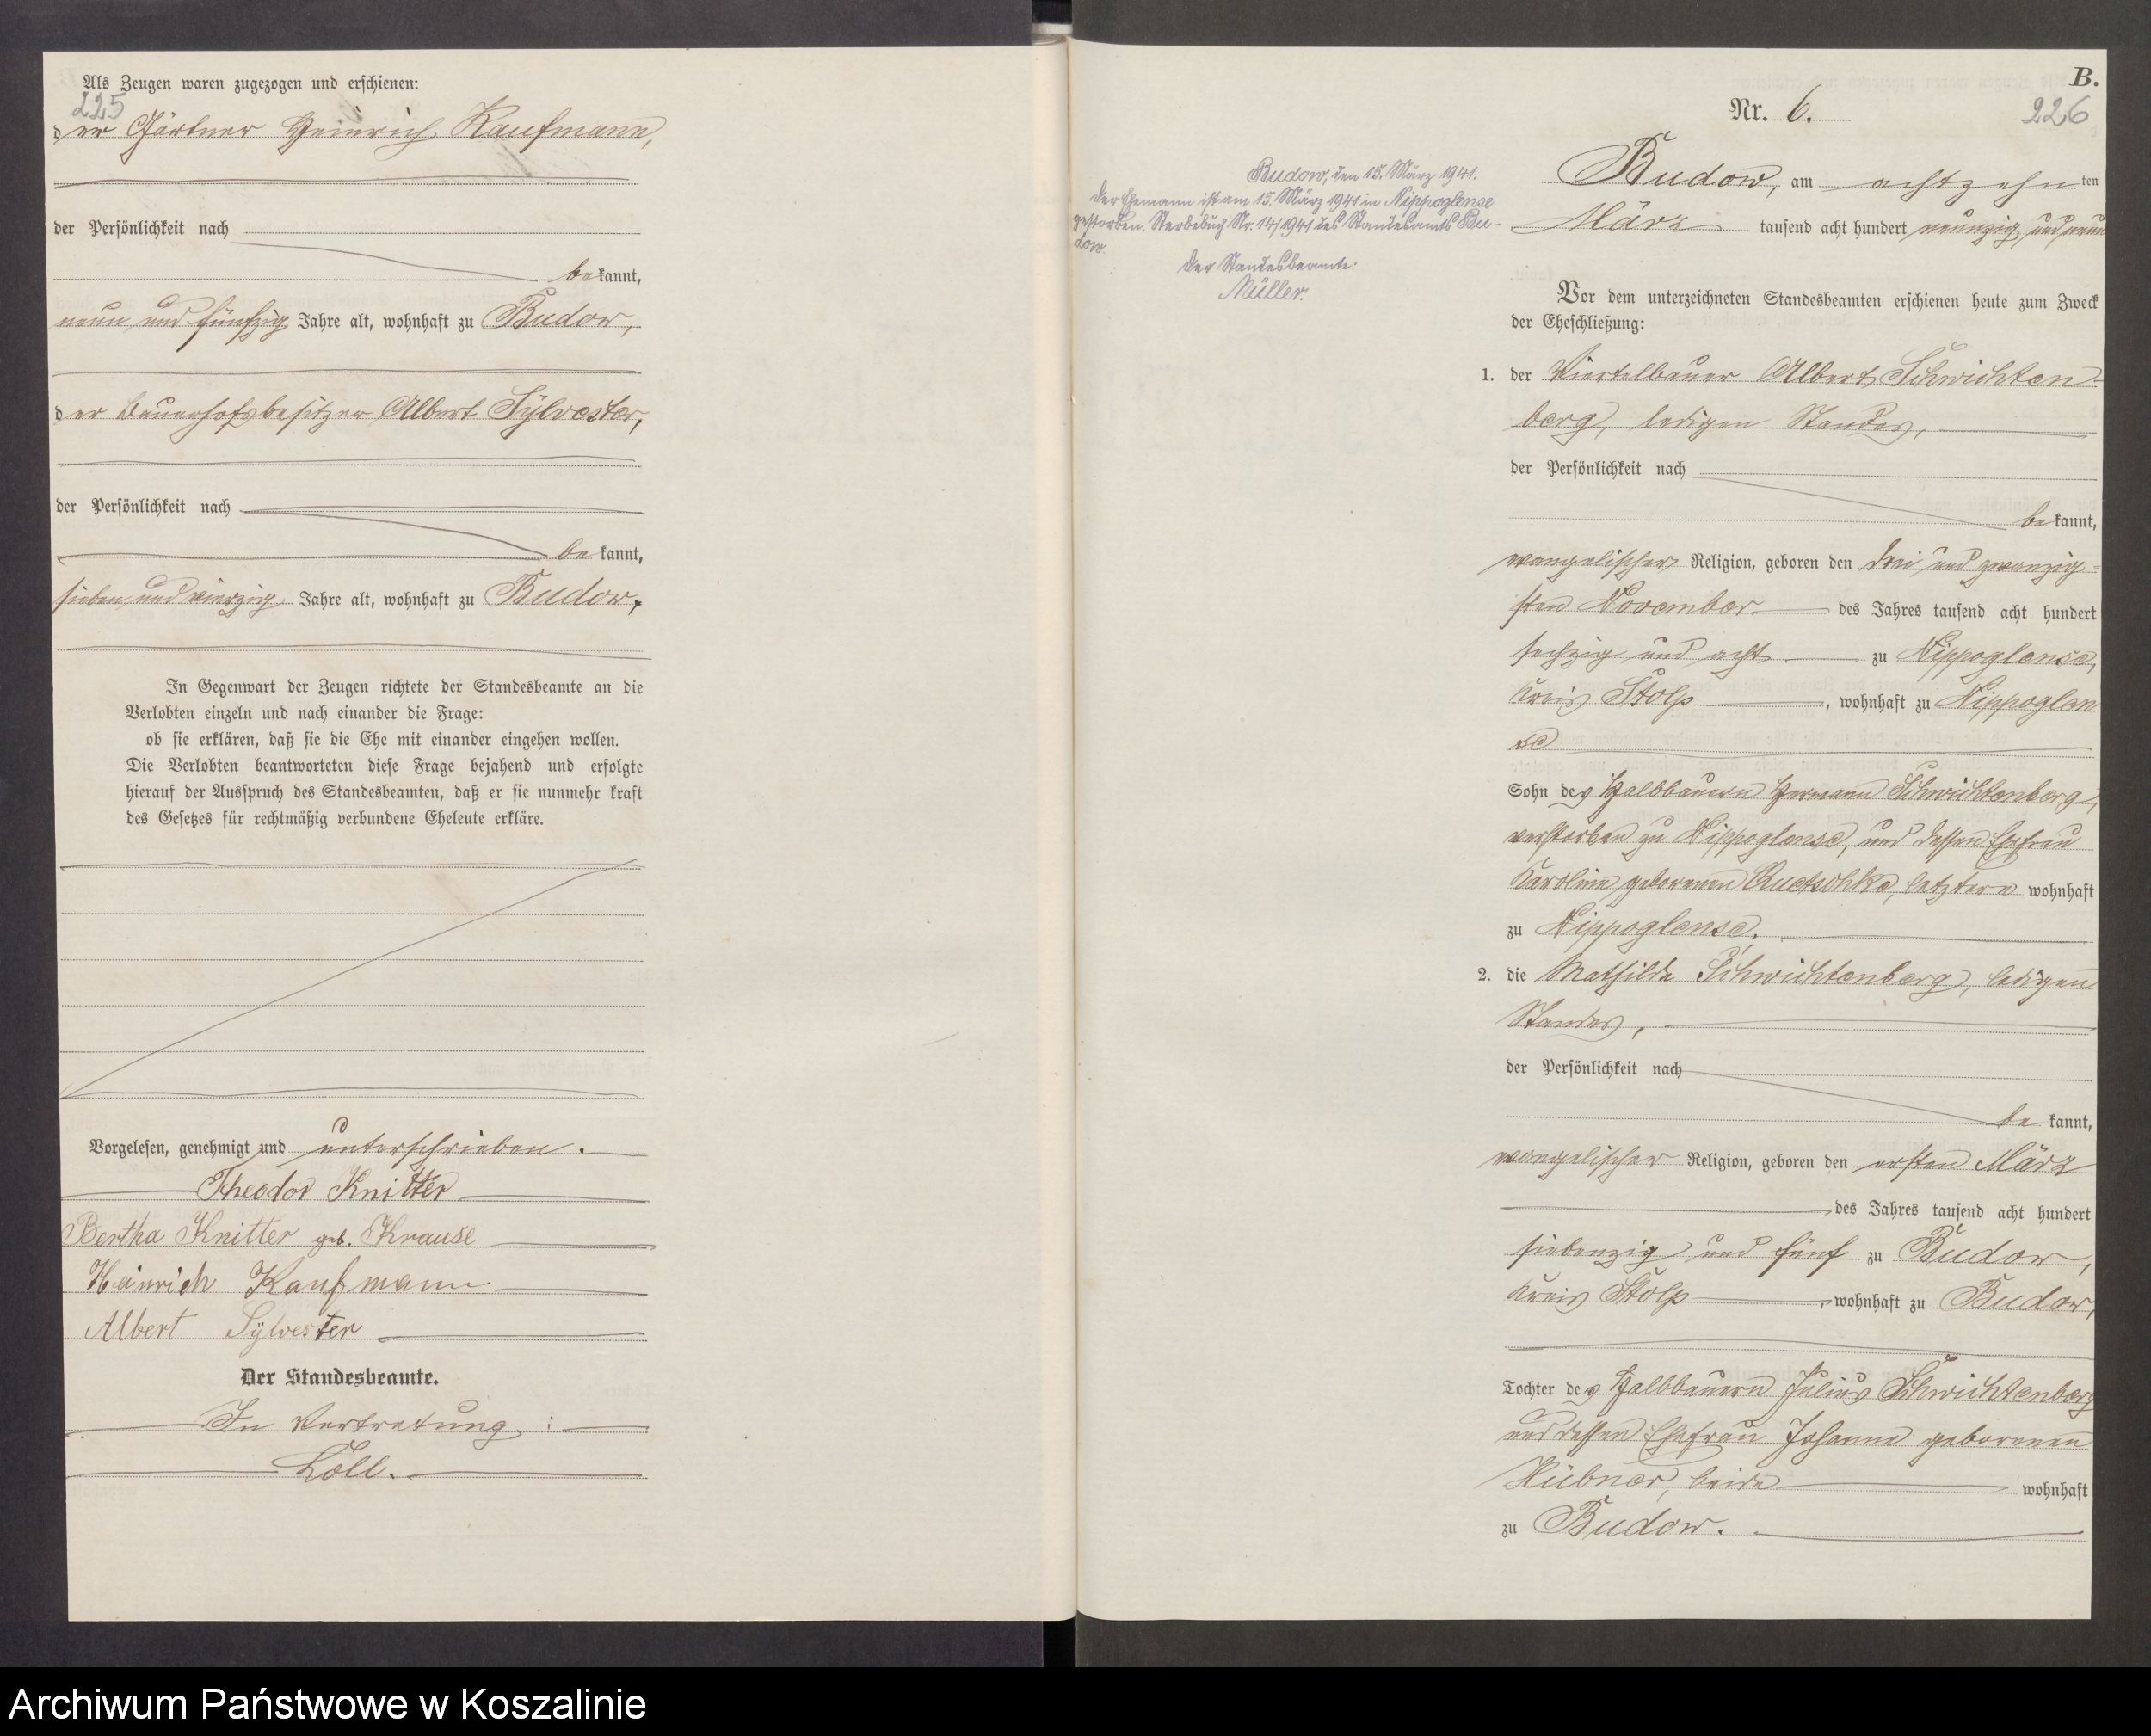 Als Zeugen waren zugezogen und erschienen:
225
der Gärtner Heinrich Kaufmann,
der Persönlichkeit nach
be kannt,
neun und fünfzig Jahre alt, wohnhaft zu Budow,
der Bauerhofsbesitzer Albert Sylvester,
der Persönlichkeit nach
be kannt,
sieben und vierzig Jahre alt, wohnhaft zu Budow,
In Gegenwart der Zeugen richtete der Standesbeamte an die
Verlobten einzeln und nach einander die Frage:
ob sie erklären, daß sie die Ehe mit einander eingehen wollen.
Die Verlobten beantworteten diese Frage bejahend und erfolgte
hierauf der Ausspruch des Standesbeamten, daß er sie nunmehr kraft
des Gesetzes für rechtmäßig verbundene Eheleute erkläre.
Vorgelesen, genehmigt und unterschrieben.
Theodor Knitter
Bertha Knitter geb. Krause
Heinrich Kaufmann
Albert Sylvester
Der Standesbeamte.
In Vertretung:
Löll.
B.
Nr. 6.
226
Budow, am achtzehn ten
März tausend acht hundert neunzig und neun
Budow, den 15. März 1941.
Der Ehemann ist am 15. März 1941 in Nippoglense
gestorben. Sterbebuch Nr. 14/1941 des Standesamts Bu-
dow.
Der Standesbeamte:
Müller.
Vor dem unterzeichneten Standesbeamten erschienen heute zum Zweck
der Eheschließung:
1. der Viertelbauer Albert Schwichten-
berg, ledigen Standes,
der Persönlichkeit nach
be kannt,
evangelischer Religion, geboren den drei und zwanzig-
sten November des Jahres tausend acht hundert
sechzig und acht zu Nippoglense,
Kreis Stolp, wohnhaft zu Nippoglen
se
Sohn des Halbbauern Hermann Schwichtenberg,
verstorben zu Nippoglense, und dessen Ehefrau
Karoline geborenen Quetschke, letztere wohnhaft
zu Nippoglense.
2. die Mathilde Schwichtenberg, ledigen
Standes,
der Persönlichkeit nach
be kannt,
evangelischer Religion, geboren den ersten März
des Jahres tausend acht hundert
siebenzig und fünf zu Budow,
Kreis Stolp, wohnhaft zu Budow,
Tochter des Halbbauern Julius Schwichtenberg
und dessen Ehefrau Johanne geborenen
Hübner, beide wohnhaft
zu Budow.
Archiwum Państwowe w Koszalinie